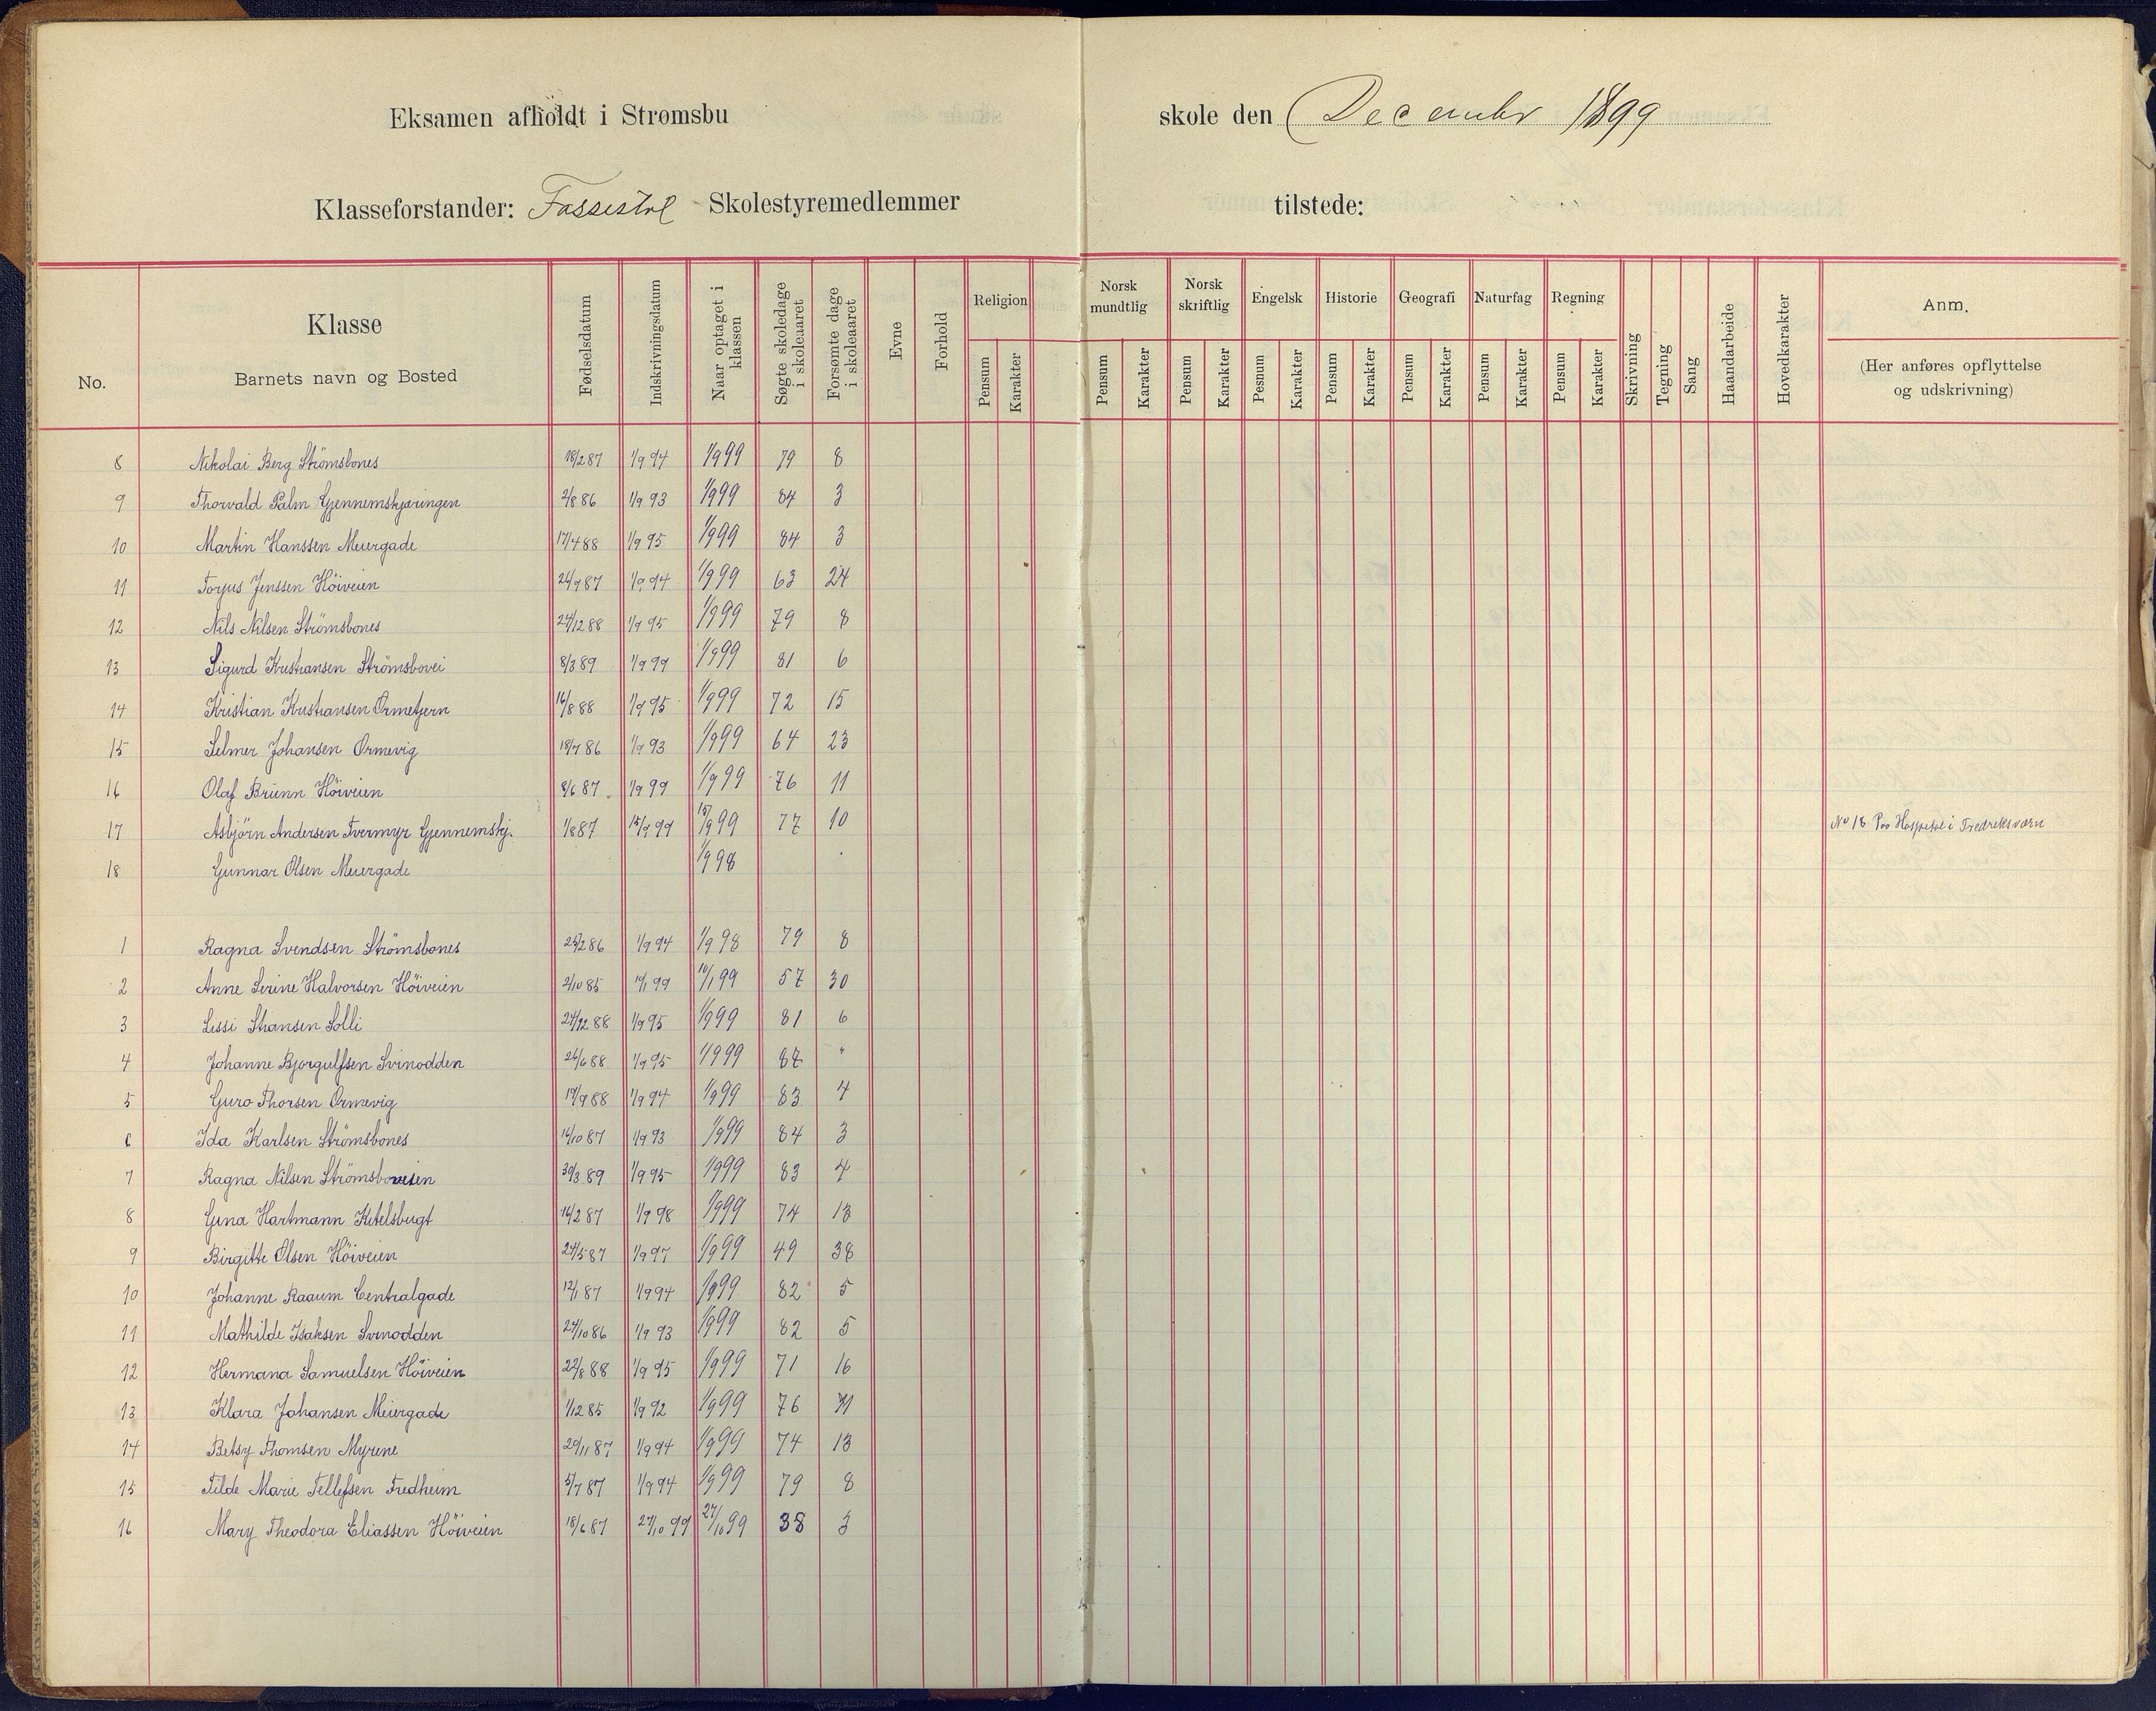 Eksamen afholdt i Strømsbu skole den December 1899
Klasseforstander: Skolestyremedlemmer tilstede:
No. Klasse Barnets navn og Bosted Fødselsdatum Indskrivningsdatum Naar optaget i klassen Søgte skoledage i skoleaaret Forsømte dage i skoleaaret Evne Forhold Religion Norsk mundtlig Norsk skriftlig Engelsk Historie Geografi Naturfag Regning Skrivning Tegning Sang Haandarbeide Hovedkarakter Anm.
Pensum Karakter Pensum Karakter Pensum Karakter Pesnum Karakter Pensum Karakter Pensum Karakter Pensum Karakter Pensum Karakter (Her anføres opflyttelse
og udskrivning)
8 Nikolai Berg Strömsbones 18/2 87 1/9 94 1/9 99 79 8
9 Thorvald Palm Gjennemskjæringen 2/8 86 1/9 93 1/9 99 84 3
10 Martin Hanssen Meiergade 17/4 88 1/9 95 1/9 99 84 3
11 Torjus Jenssen Höiveien 24/9 87 1/9 94 1/9 99 63 24
12 Nils Nilsen Strömsbones 24/12 88 1/9 95 1/9 99 79 8
13 Sigurd Kristiansen Strömsbovei 8/3 89 1/9 99 1/9 99 81 6
14 Kristian Kristiansen Ormetjern 16/8 88 1/9 95 1/9 99 72 15
15 Selmer Johansen Ormevig 18/7 86 1/9 93 1/9 99 64 23
16 Olaf Brünn Höiveien 8/6 87 1/9 99 1/9 99 76 11
17 Asbjörn Andersen Tvermyr Gjennemskj. 1/8 87 15/9 99 15/9 99 77 10 No 18 Paa Hospital i Fredriksværn
18 Gunnar Olsen Meiergade 1/9 98
1 Ragna Svendsen Strömsbones 25/2 86 1/9 94 1/9 98 79 8
2 Anne Serine Halvorsen Höiveien 2/10 85 10/1 99 10/1 99 57 30
3 Lissi Solli 24/12 88 1/9 95 1/9 99 81 6
4 Johanne Bjorgulfsen Svinodden 26/6 88 1/9 95 1/9 99 87 "
5 Guro Thorsen Ormevig 19/9 88 1/9 94 1/9 99 83 4
6 Ida Karlsen Strömsbones 14/10 87 1/9 93 1/9 99 84 3
7 Ragna Nilsen Strömsboveien 30/3 89 1/9 95 1/9 99 83 4
8 Gina Hartmann Kitelsbugt 14/2 87 1/9 98 1/9 99 74 13
9 Birgitte Olsen Höiveien 24/5 87 1/9 97 1/9 99 49 38
10 Johanne Raaum Centralgade 12/1 87 1/9 94 1/9 99 82 5
11 Mathilde Isaksen Svinodden 24/10 86 1/9 93 1/9 99 82 5
12 Hermana Samuelsen Höiveien 22/8 88 1/9 95 1/9 99 71 16
13 Klara Johansen Meiergade 1/12 85 1/9 92 1/9 99 76 11
14 Betsy Thomsen Myrene 20/11 87 1/9 94 1/9 99 74 13
15 Tilde Marie Tellefsen Fredheim 5/7 87 1/9 94 1/9 99 79 8
16 Mary Theodora Eliassen Höiveien 18/6 87 27/10 99 27/10 99 38 3